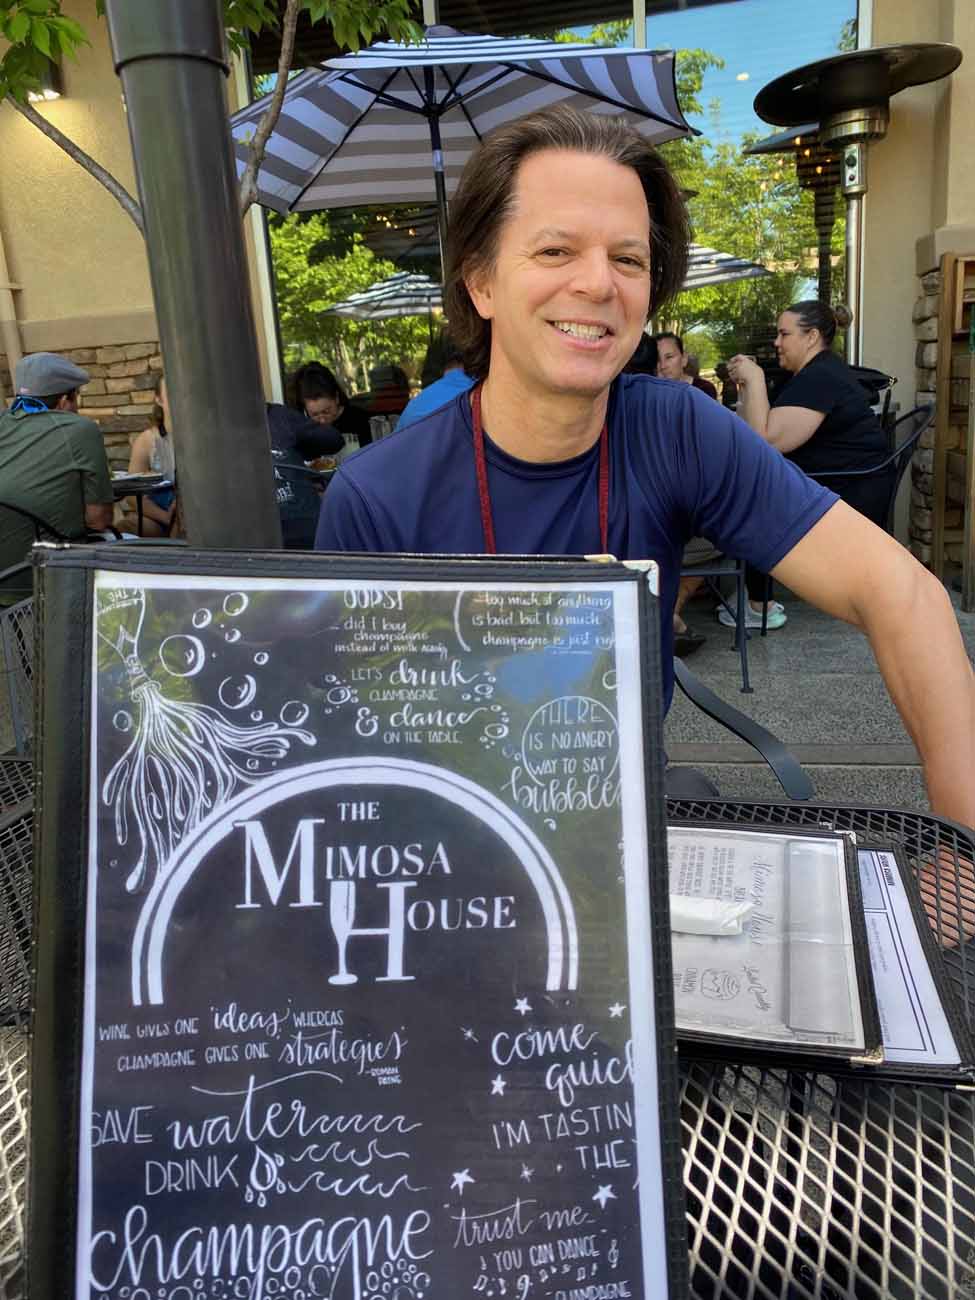 OOPS!
did I buy
champagne
instead of milk again
too much of anything
is bad, but too much
champagne is just
LET'S drink
CHAMPAGNE
& dance
ON THE TABLE.
THERE
IS NO ANGRY
WAY TO SAY
bubbles
THE
MIMOSA
HOUSE
WINE GIVES ONE 'ideas,' WHEREAS
CHAMPAGNE GIVES ONE 'strategies'
-ROMAN
PAYNE
SAVE water
DRINK
champagne
come
quic
I'M TASTIN
THE
trust me
YOU CAN DANCE
-CHAMPAGNE
Mimosa House